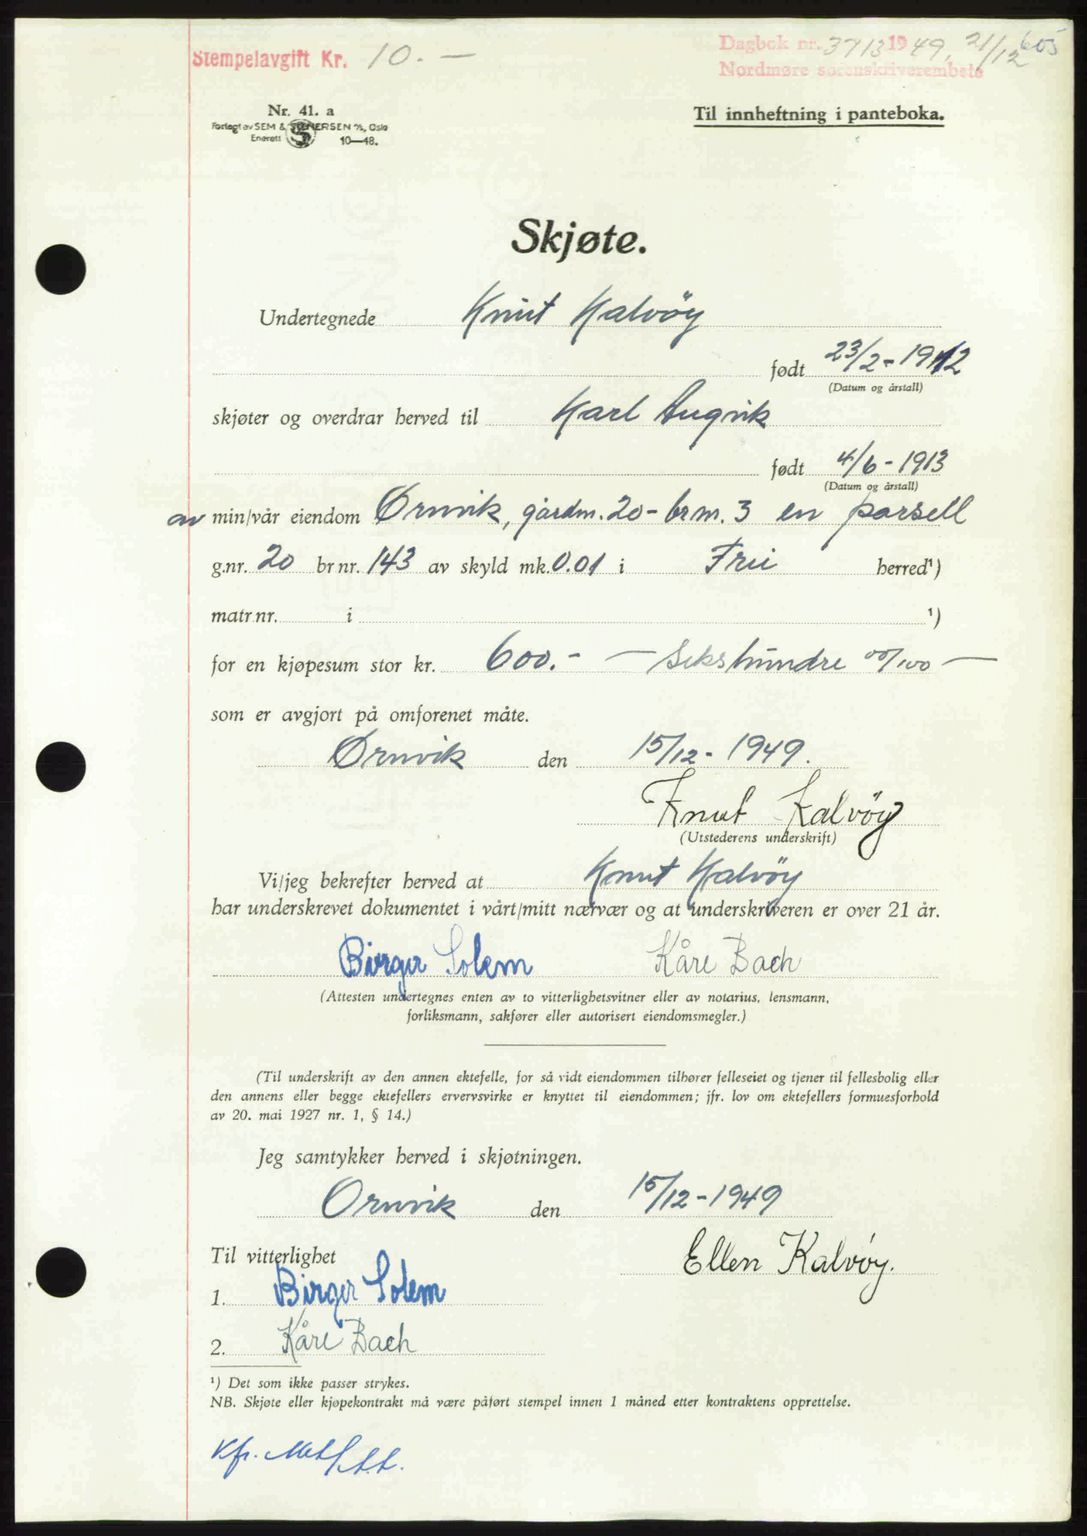 Stempelavgift Kr. 10.—
Dagbok nr. 3713 1949, 21/12 605
Nordmøre sorenskriverembete
Nr. 41. a
Forlagt av SEM & STENERSEN A/S, Oslo
Enerett 10—48.
Til innheftning i panteboka.
Skjøte.
Undertegnede Knut Kalvöy
født 23/2-1912
(Datum og årstall)
skjøter og overdrar herved til Karl Augvik
født 4/6-1913
(Datum og årstall)
av min/vår eiendom Ørnvik, gårdnr. 20 - br.nr. 3 en parsell
g.nr. 20 br nr. 143 av skyld mk. 0.01 i Frei herred¹)
matr.nr. i ¹)
for en kjøpesum stor kr. 600.- — Sekshundre 00/100 —
som er avgjort på omforenet måte.
Ørnvik den 15/12-1949.
Knut Kalvöy
(Utstederens underskrift)
Vi/jeg bekrefter herved at Knut Kalvöy
har underskrevet dokumentet i vårt/mitt nærvær og at underskriveren er over 21 år.
Birger Solem Kåre Bach
(Attesten undertegnes enten av to vitterlighetsvitner eller av notarius, lensmann,
forliksmann, sakfører eller autorisert eiendomsmegler.)
(Til underskrift av den annen ektefelle, for så vidt eiendommen tilhører felleseiet og tjener til fellesbolig eller
den annens eller begge ektefellers ervervsvirke er knyttet til eiendommen; jfr. lov om ektefellers formuesforhold
av 20. mai 1927 nr. 1, § 14.)
Jeg samtykker herved i skjøtningen.
Ørnvik den 15/12-1949
Til vitterlighet
Ellen Kalvöy.
1. Birger Solem
2. Kåre Bach
¹) Det som ikke passer strykes.
NB. Skjøte eller kjøpekontrakt må være påført stempel innen 1 måned etter kontraktens opprettelse.
Kfr.